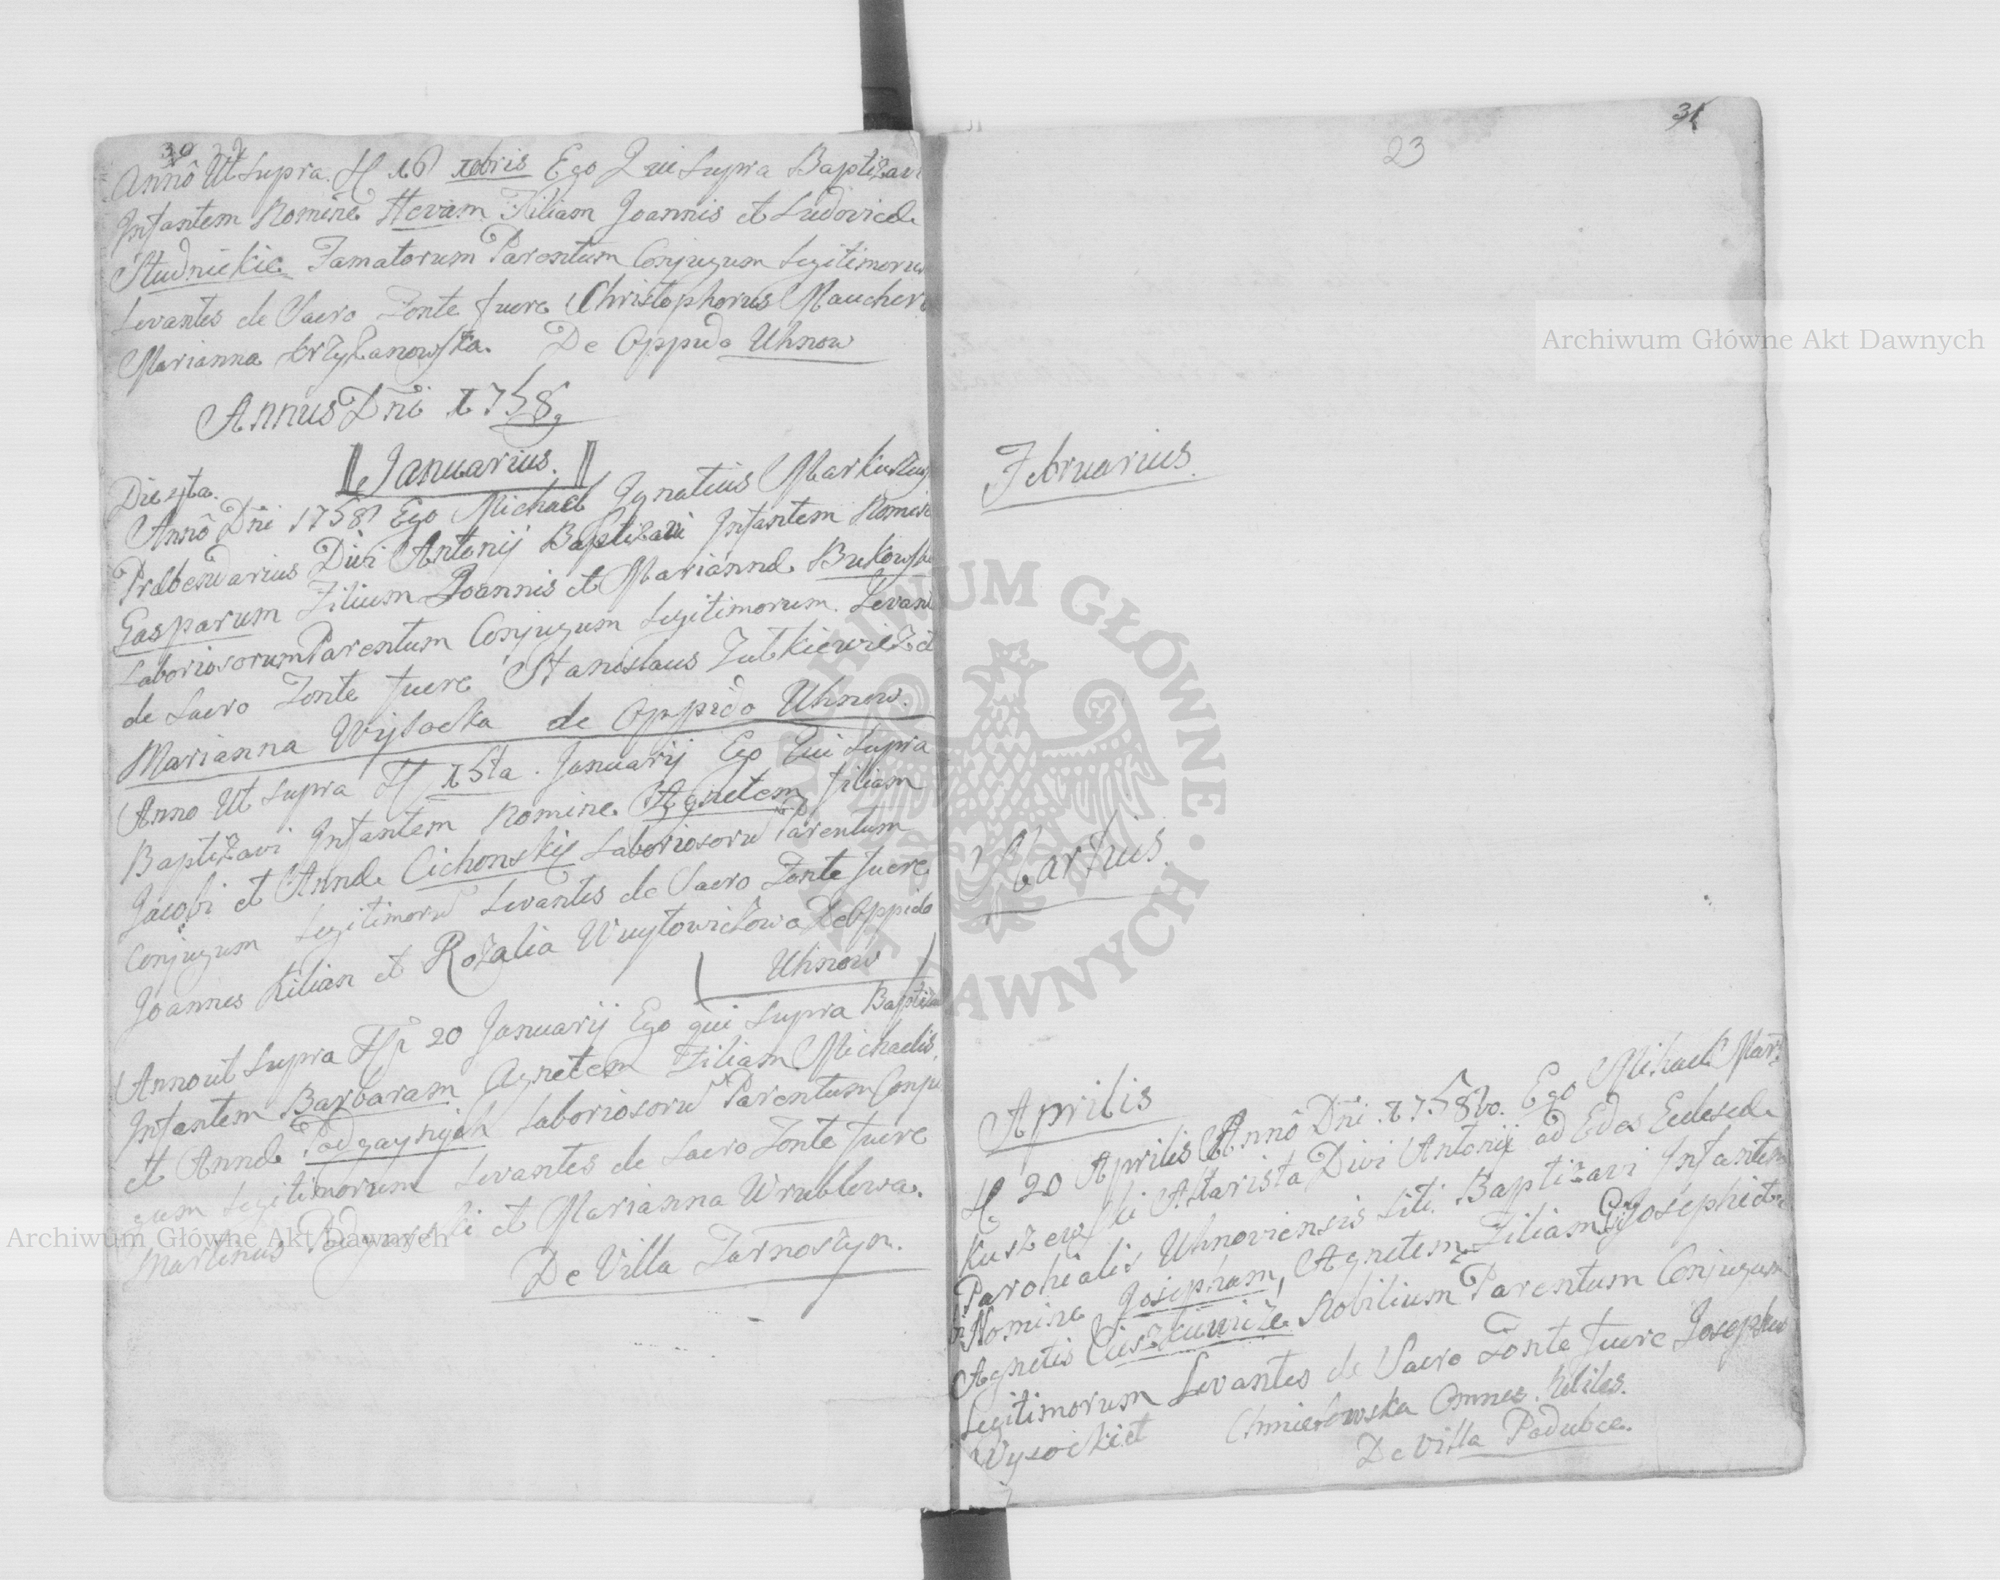 30
Annô Ut Supra. H 16 Xbris Ego Qui Supra Baptizavi
Infantem Nomine Hevam Filiam Joannis et Ludovicæ
Studnickie Famatorum Parentum Conjugum Legitimorum
Levantes de Sacro Fonte fuere Christophorus Maucher
Marianna Krzyżanowska. De Oppido Uhnow
Annus Dñi 1758
Januarius.
Die 4ta.
Annô Dñi 1758 Ego Michael Ignatius Markuszew
Præbendarius Divi Antonij Baptizavi Infantem Nomine
Gasparum Filium Joannis et Mariannæ Bukowskie
Laboriosorum Parentum Conjugum Legitimorum. Levan
de Sacro Fonte fuere Stanislaus Zutkiewicz et
Marianna Wysocka de Oppido Uhnow.
Anno Ut Supra H 15ta. Januarij Ego Qui Supra
Baptizavi Infantem Nomine Agnetem filiam
Jacobi et Annæ Cichonskij Laboriosorũ Parentum
Conjugum Legitimorũ Levantes de Sacro Fonte fuere
Joannes Kilian et Rozalia Wuytowiczowa De Oppido
Uhnow
Anno ut Supra 20 Januarij Ego qui Supra Baptiza
Infantem Barbaram Agnetem Filiam Michaelis
et Annæ Podgaynych Laboriosorũ Parentum Conju
gum Legitimorum Levantes de Sacro Fonte fuere
Martinus Podgurski et Marianna Wrublowa.
De Villa Tarnoszyn.
31
23
Februarius.
Martius.
Aprilis
H 20 Aprilis Annô Dñi 1758vo. Ego Mihael Mar
kuszewski Altarista Divi Antonij ad Edes Eclesiæ
Parohialis Uhnoviensis Liti. Baptizavi Infantem
Nomine Josepham, Agnetem Filiam Josephi et
Agnetis Ciuszkiewicze Nobilium Parentum Conjugum
Legitimorum Levantes de Sacro Fonte fuere Josephus
Wysocki et Chmielowska Omnes Nbiles.
De Villa Podubce.
Archiwum Główne Akt Dawnych
Archiwum Główne Akt Dawnych
ARCHIWUM GŁÓWNE · AKT DAWNYCH ·